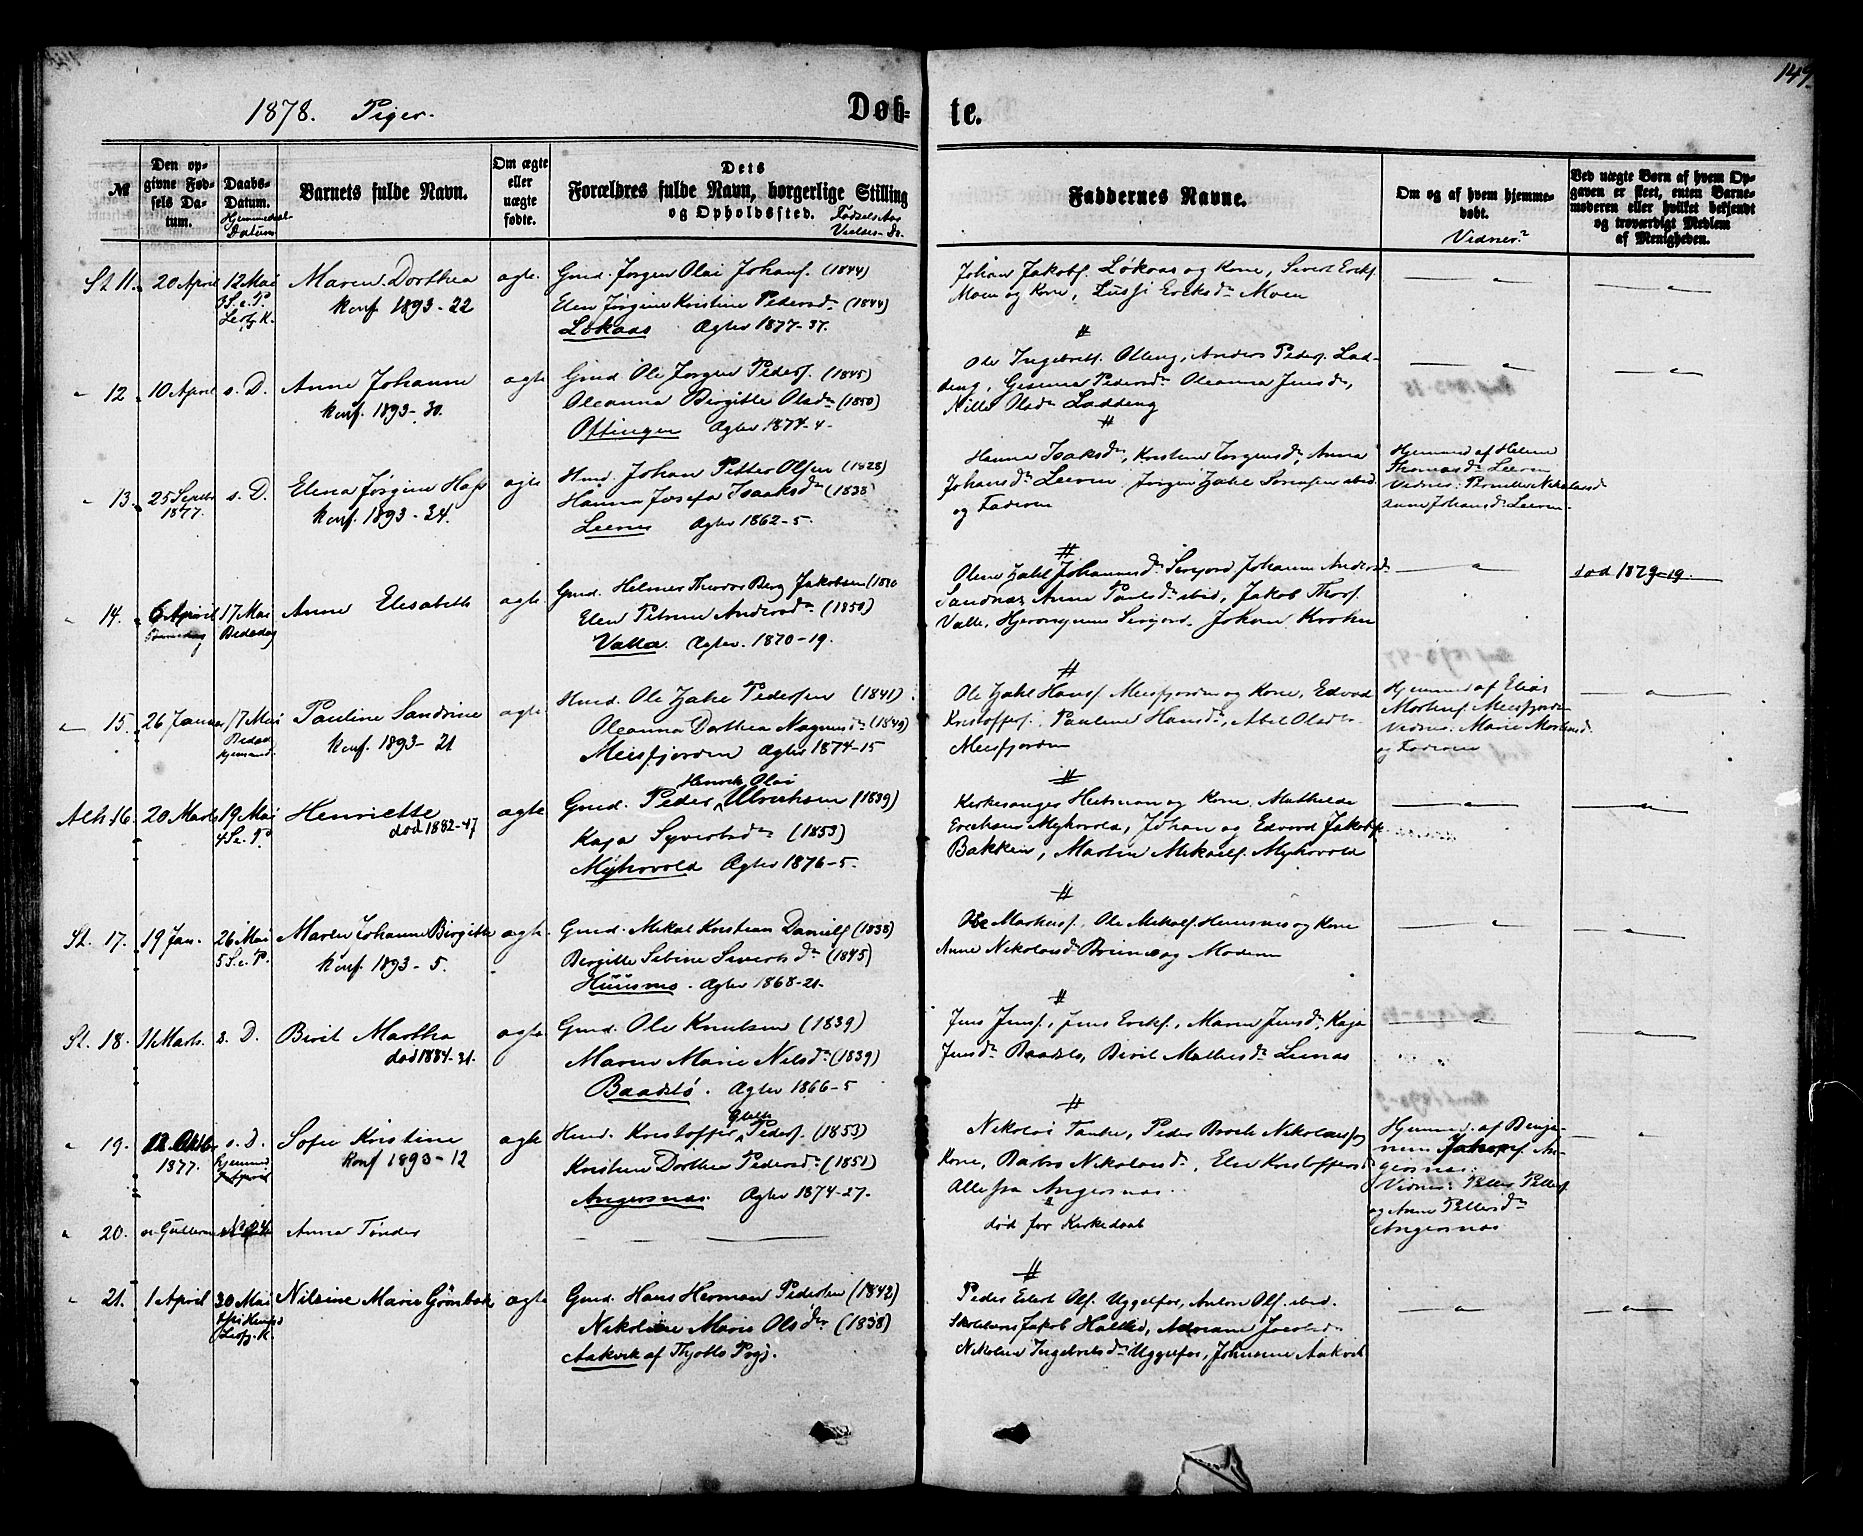 149.
1878. Piger.
Døb-
te.
№
Den op-
givne Fød-
sels Da-
tum.
Daabs-
Datum.
Hjemmedaab
Datum
Barnets fulde Navn.
Om ægte
eller
uægte
fødte.
Dets
Forældres fulde Navn, borgerlige Stilling
og Opholdssted.
Fødsels Aar
Vielses- do.
Faddernes Navne.
Om og af hvem hjemme-
døbt.
Vidner?
Ved uægte Børn af hvem Op-
gaven er skeet, enten Barne-
moderen eller hvilket bekjendt
og troværdigt Medlem
af Menigheden.
St. 11. 20 April 12 Mai
3 S. e. P.
Maren Dorthea
Konf. 1893-22
ægte
Gmd. Jørgen Olai Johans. (1844)
Elen Jørgine Kristine Pedersdr (1844)
Løkaas Ægtev 1877-37.
Johan Jakobs. Løkaas og Kone, Sivert Eriks.
Moen og Kone, Lussi Eriksdr Moen
12 10 April s. D. Anne Johanne
Konf. 1893-30.
ægte
Gmd. Ole Jørgen Peders. (1845)
Oleanna Birgitte Olsdr (1850)
Offingen Ægtev 1874-4.
Ole Ingebrits. Olling, Anders Peders. Lad-
ding, Gesina Pedersdr Oleanna Jensdr,
Nille Olsdr Ladding
13. 25 Septb
1877.
s. D. Elena Jørgine
Konf. 1893-34.
ægte
Hmd. Johan Petter Olsen (1828)
Hanna Josefa Isaaksdr (1838)
Leeren Ægtev 1862-5.
Hanna Isaaksdr, Kristine Jørgensdr, Anna
Johansdr Leeren, Jørgen Zahl Sørensen ibid.
og Faderen
Hjemmed. af Helene
Thomasdr Leeren
Vidner: Pernille Nikolaisd
Anne Johansdr Leeren.
14. 6 April 17 Mai
Bededag
Anne Elisabeth
ægte
Gmd. Helmer Theodor Berg Jakobsen
Elen Petrine Andersdr (1850)
Valla. Ægtev. 1870-19.
Olene Zahl Johannesdr Sørfjord, Johanna Andersd
Sandnæs Anne Paulsdr ibid, Jakob Thors.
Valle, Hjeronymus Sørfjord, Johan Krohn
død 1879-19.
15. 26 Januar 17 Mai
Bededag
hjemmed.
Pauline Sandrine
Konf. 1893-21
ægte
Hmd. Ole Zahl Pedersen (1841)
Oleanna Dorthea Magnusdr (1849)
Meisfjorden Ægtev 1874-15
Ole Zahl Hans. Meisfjorden og Kone, Edvard
Kristoffers., Pauline Hansdr, Abel Olsdr
Meisfjorden
Hjemmed af Elias
Mortens. Meisfjorden
Vidner: Marie Mortensd
og Faderen
Alh. 16. 20 Marts 19 Mai
4 S. e. P.
Henriette
død 1882-47
ægte
Henrik Olai
Gmd. Peder Ulriksen (1839)
Kaja Syvertsdr (1853)
Myhrvold Ægtev 1876-5.
Kirkesanger Hutsman og Kone, Mathilde
Eriksen Myhrvold, Johan og Edvard Jakobs.
Bakken, Martin Mikaels. Myhrvold
St. 17. 19 Jan. 26 Mai
5 S. e. P.
Maren Johanne Birgitte
Konf. 1893-5.
ægte
Gmd. Mikal Kristian Daniels. (1838)
Birgitte Sebine Sivertsdr (1845)
Ægtev 1868-21.
Ole Markus., Ole Mikals. og Kone
Anne Nikolaisdr og Moderen
St. 18. 11 Marts. s. D. Berit Martha
død 1884-31.
ægte
Gmd. Ole Knutsen (1839)
Maren Marie Nilsdr (1839)
Baadslø. Ægtev 1866-5
Jens Jens., Jens Eriks., Maren Jensdr, Kaja
Jensdr Baadslø, Berit Mathisdr Leinæs
19. 12 Oktb
1877.
s. D.
hjemmed
Sofie Kristine
Konf 1893-12
ægte
Hmd. Kristoffer Peders. (1853)
Kristine Dorthea Pedersdr (1851)
Angersnæs. Ægtev 1874-27.
Nikolai Tanke, Peder Broch Nikolaisen og
Kone, Barbro Nikolaisdr, Else Kristoffersd
Alle fra Angersnæs.
Hjemmed. af Benja-
min Jakops. An-
gersnæs.
Vidner: Petter Petters.
og Anne Pettersdr
Angersnæs
20. Anna Tønder
død før Kirkedaab
21. 1 April 30 Mai
Nilsine Marie Grønbek
ægte
Gmd. Hans Herman Pedersen (1842)
Nikoline Marie Olsdr (1838)
Aakvik af Thjøttø Pgj.
Peder Edert Ols. Uggelfor, Anton Ols. ibid.
Skolelærer Jakob Halled, Adriane
Nikoline Ingebritsdr Uggelfor, Johnsine Aakvik